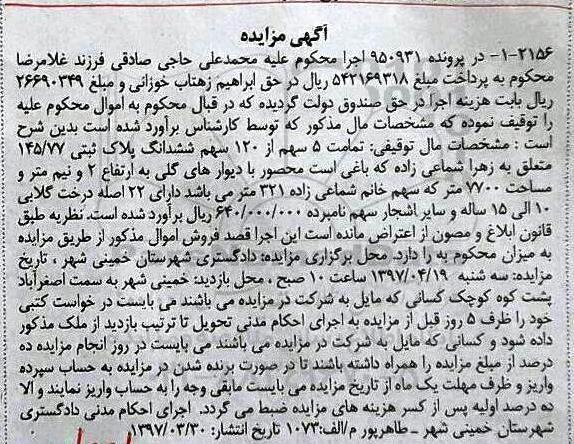 آگهی مزایده
۲۱۵۶-۱- در پرونده ۹۵۰۹۳۱ اجرا محکوم علیه محمدعلی حاجی صادقی فرزند غلامرضا
محکوم به پرداخت مبلغ ۵۴۲۱۶۹۳۱۸ ریال در حق ابراهیم زهتاب خوزانی و مبلغ ۲۶۶۹۰۳۴۹
ریال بابت هزینه اجرا در حق صندوق دولت گردیده که در قبال محکوم به اموال محکوم علیه
را توقیف نموده که مشخصات مال مذکور که توسط کارشناس برآورد شده است بدین شرح
است : مشخصات مال توقیفی: تمامت ۵ سهم از ۱۲۰ سهم ششدانگ پلاک ثبتی ۱۴۵/۷۷
متعلق به زهرا شماعی زاده که باغی است محصور با دیوار های گلی به ارتفاع ۲ و نیم متر و
مساحت ۷۷۰۰ متر که سهم خانم شماعی زاده ۳۲۱ متر می باشد دارای ۲۲ اصله درخت گلابی
۱۰ الی ۱۵ ساله و سایر اشجار سهم نامبرده ۶۴۰/۰۰۰/۰۰۰ ریال برآورد شده است. نظریه طبق
قانون ابلاغ و مصون از اعتراض مانده است این اجرا قصد فروش اموال مذکور از طریق مزایده
به میزان محکوم به را دارد. محل برگزاری مزایده: دادگستری شهرستان خمینی شهر ، تاریخ
مزایده: سه شنبه ۱۳۹۷/۰۴/۱۹ ساعت ۱۰ صبح ، محل بازدید: خمینی شهر به سمت اصغرآباد
پشت کوه کوچک کسانی که مایل به شرکت در مزایده می باشند می بایست در خواست کتبی
خود را ظرف ۵ روز قبل از مزایده به اجرای احکام مدنی تحویل تا ترتیب بازدید از ملک مذکور
داده شود و کسانی که مایل به شرکت در مزایده می باشند می بایست در روز انجام مزایده ده
درصد از مبلغ مزایده را همراه داشته باشند تا در صورت برنده شدن در مزایده به حساب سپرده
واریز و ظرف مهلت یک ماه از تاریخ مزایده می بایست مابقی وجه را به حساب واریز نمایند و الا
ده درصد اولیه پس از کسر هزینه های مزایده ضبط می گردد. اجرای احکام مدنی دادگستری
شهرستان خمینی شهر ـ طاهرپور م/الف:۱۰۷۳ تاریخ انتشار: ۱۳۹۷/۰۳/۳۰